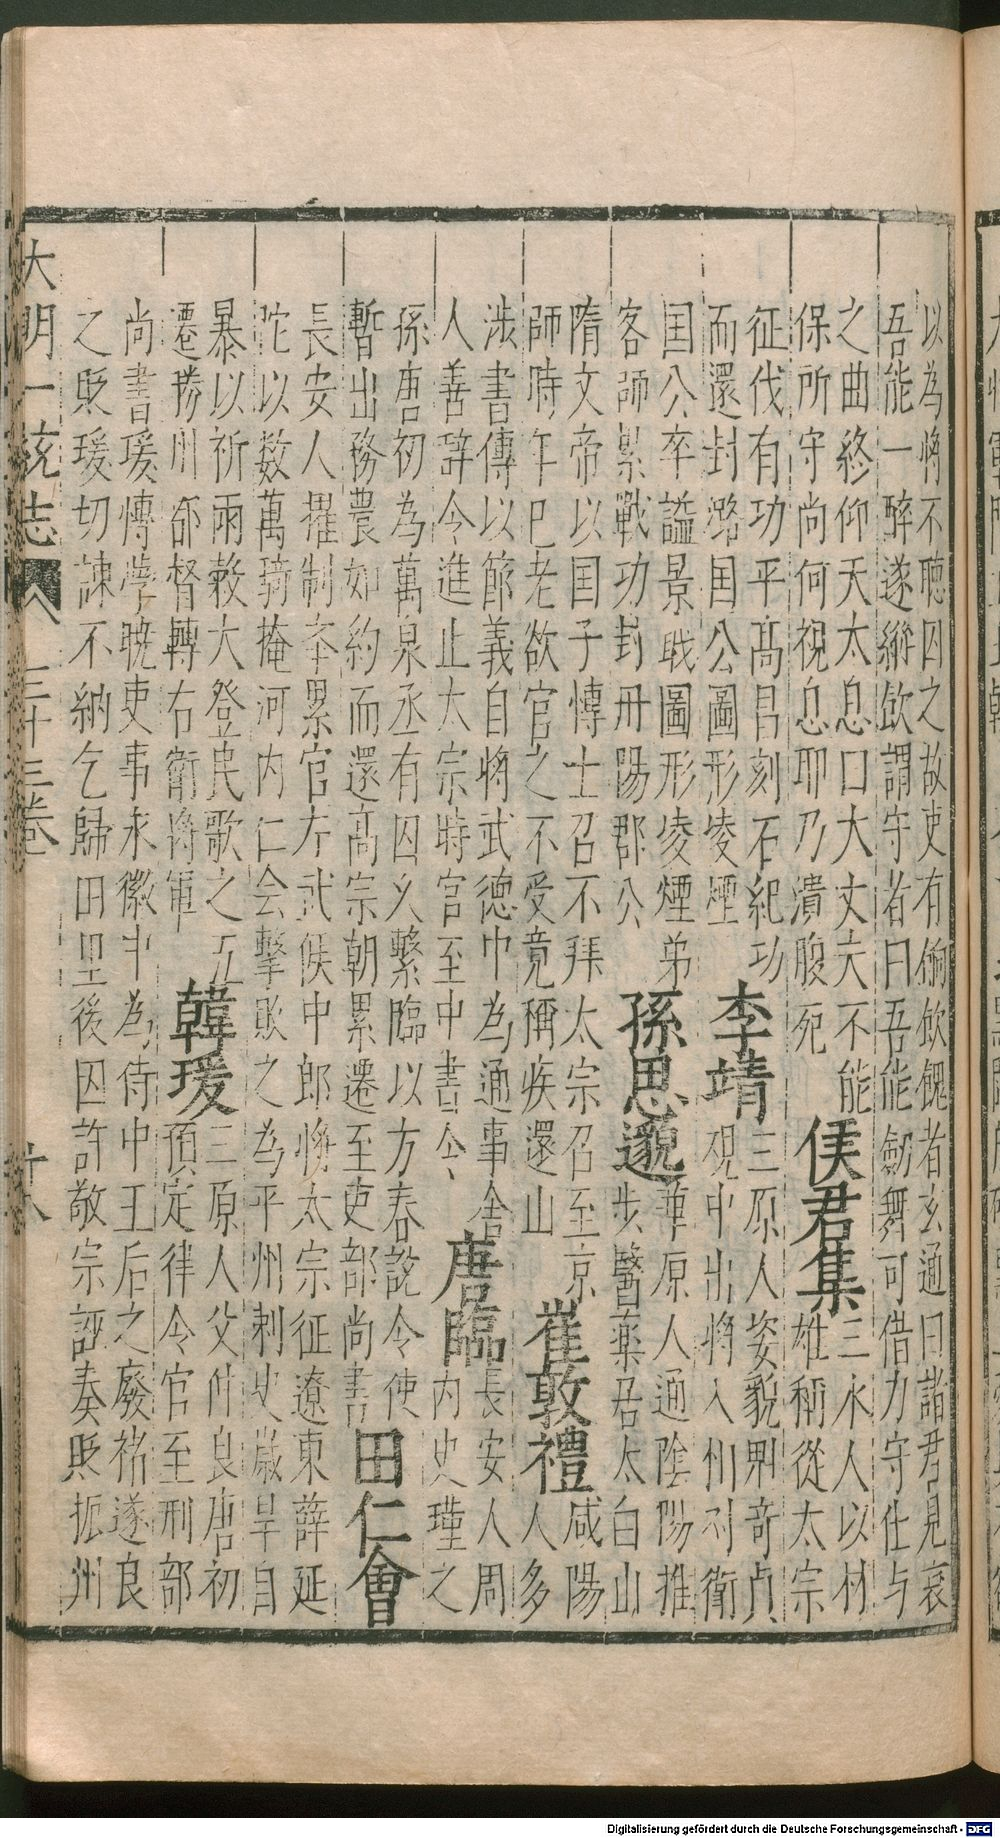 以為將不聽囚之故吏有餉飲餽者玄通曰諸君見哀
吾能一醉遂縱飲謂守者曰吾能劒舞可借力守仕与
之曲終仰天太息口大丈夫不能
保所守尚何視息耶乃潰腹死
侯君集
三水人以材
雄稱從太宗
征伐有功平髙昌刻石紀功
而還封潞国公圖形凌煙
李靖
三原人姿貌魁奇貞
觀中出將入相列衛
国公卒謚景戰圖形凌煙弟
客師累戰功封丹陽郡公
孫思邈
華原人通陰陽推
步醫藥居太白山
隋文帝以国子博士召不拜太宗召至京
師時年已老欲官之不受竟稱疾還山
崔敦禮
咸陽
人多
涉書傳以節義自將武德中為通事舍
人善辞令進止太宗時官至中書令
唐臨
長安人周
內史瑾之
孫唐初為萬泉丞有囚久繫臨以方春說令使
暫出務農如約而還髙宗朝累遷至吏部尚書
田仁會
長安人擢制举累官左武候中郎將太宗征遼東薛延
陀以数萬騎掩河内仁会擊敗之為平州刺史歲旱自
暴以祈雨穀大登民歌之五
遷勝州都督轉右衛將軍
韓瑗
三原人父仲良唐初
預定律令官至刑部
尚書瑗博學曉吏事永徽中為侍中王后之廢褚遂良
之貶瑗切諫不納乞歸田里後因許敬宗誣奏貶振州
大明一統志
三十三卷
廿八
Digitalisierung gefördert durch die Deutsche Forschungsgemeinschaft - DFG